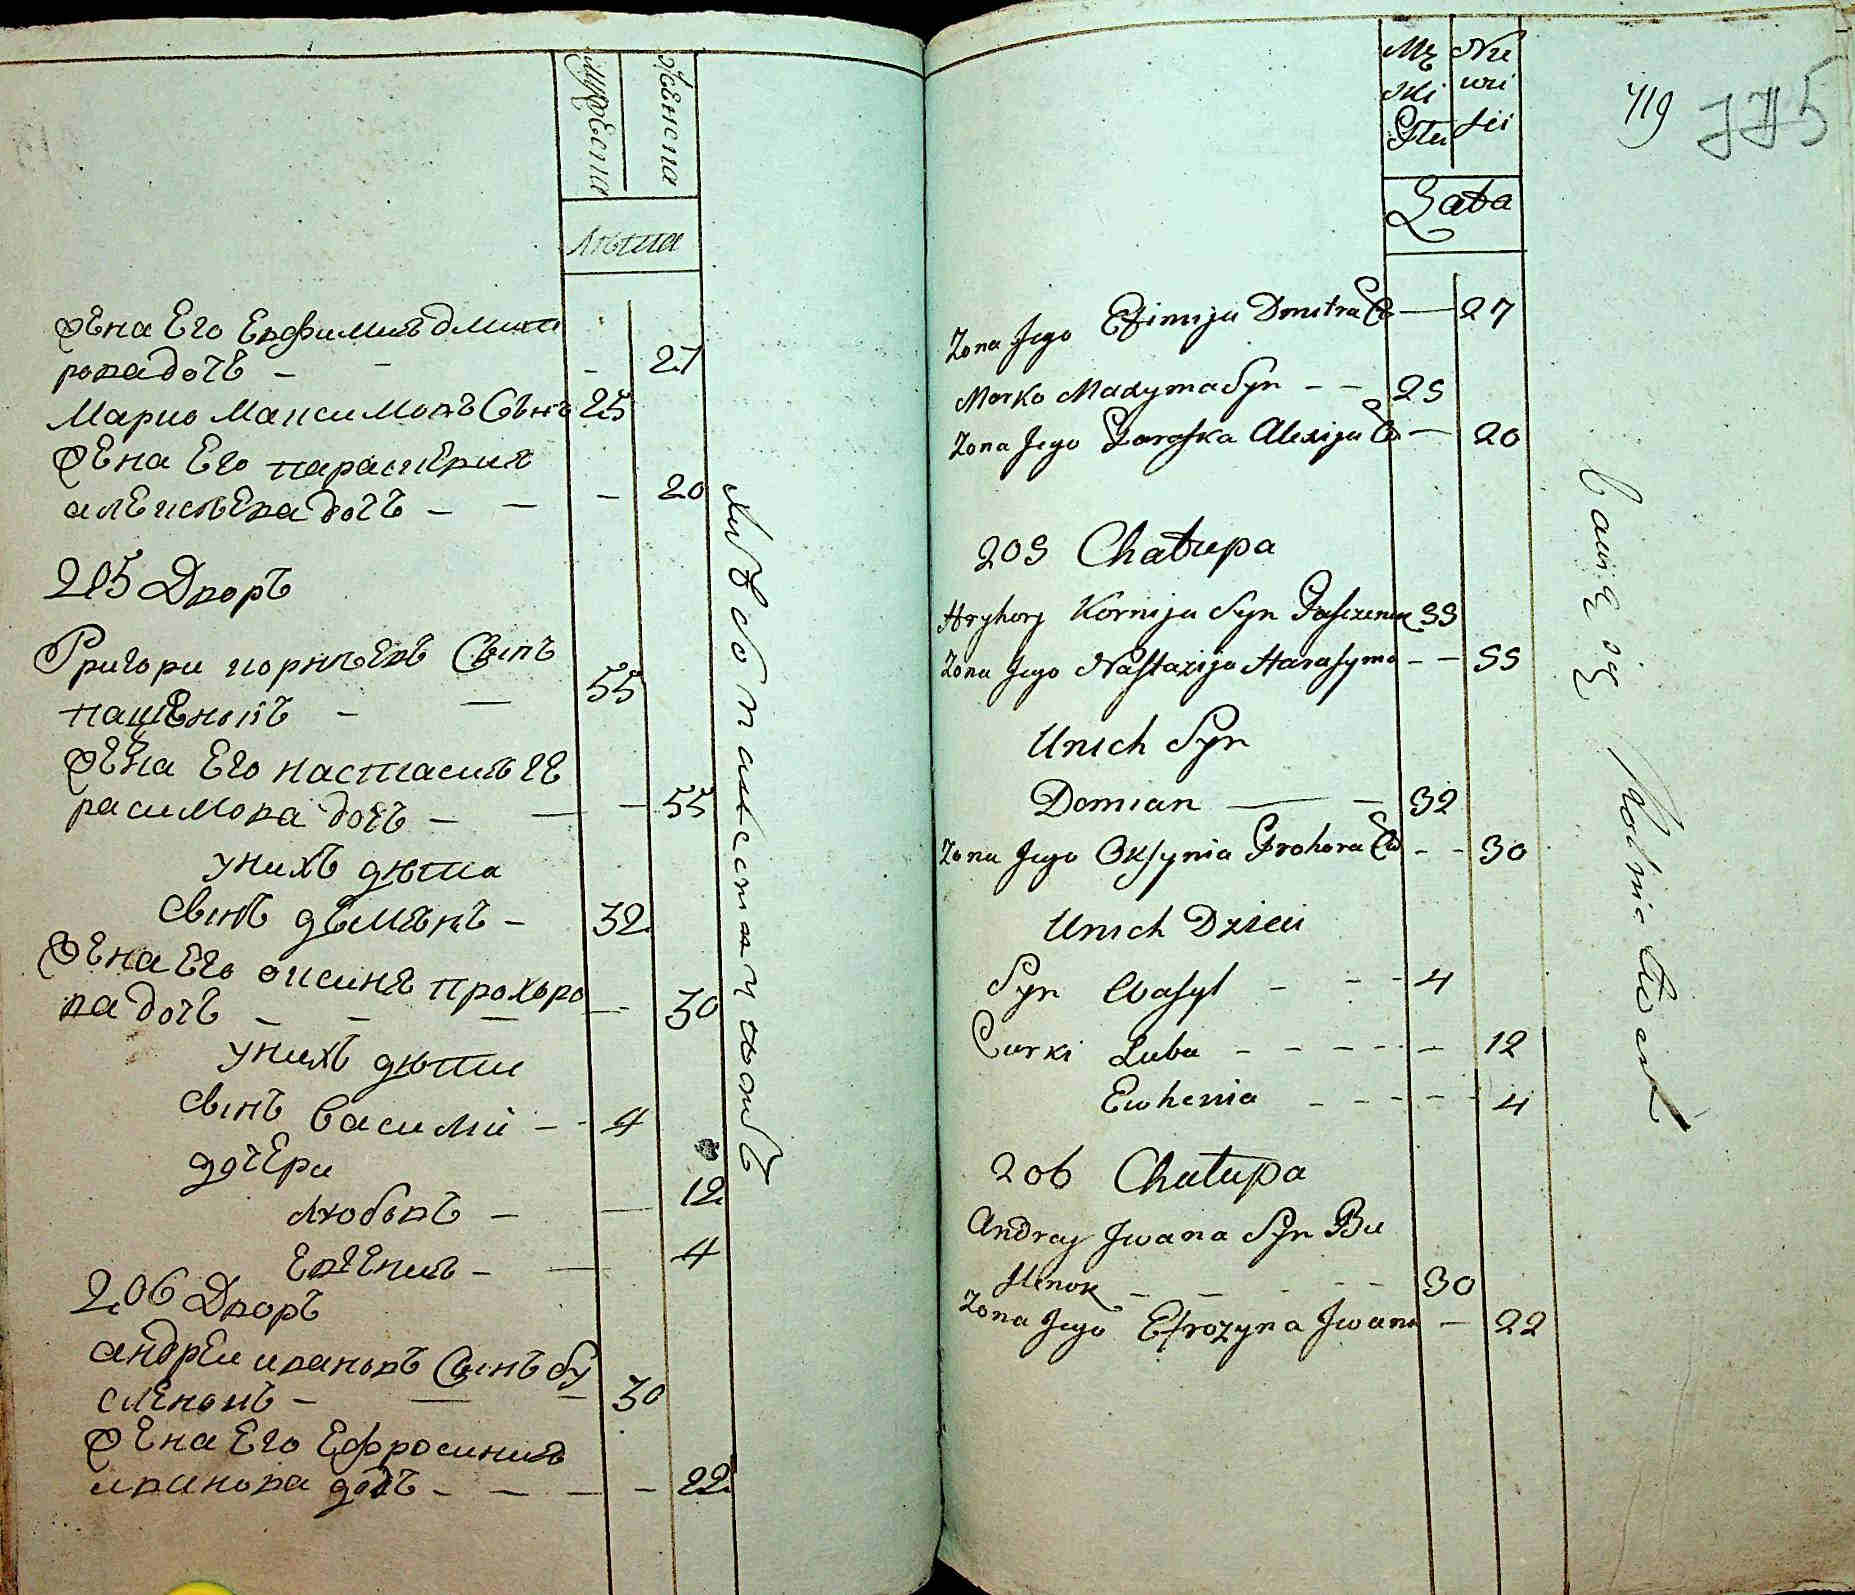 Мужеска
Женска
Лѣта
жена Его Евфимия дмит
рова дочь - - - 27
Марко Максимовъ Сынъ 25
жена Его параскевия
алексѣева дочь - - - 20
205 Дворъ
Григори корнѣевъ Сынъ
пащенокъ - - 55
жена Его настасия ге
расимова дочь - - - 55
у нихъ дѣти
сынъ демянъ - 32
жена Его оксиня прохоро
ва дочь - - - - 30
у нихъ дѣти
сынъ василий - - 4
дочери
любовь - - 12
евгения - - 4
206 Дворъ
андреи ивановъ Сынъ бу
сленокъ - - - 30
жена Его Ефросиния
иванова дочь - - - - 22
Mę Nie
ski wie
Płci ści
Lata
719 775
Żona Jego Efimija Dmitra Co — 27
Marko Maxyma Syn - - 25
Żona Jego Paraska Alexija Co — 20
205 Chałupa
Hryhory Kornija Syn Paszczenok 55
Żona Jego Nastazija Harasyma - - 55
U nich Syn
Domian — - 32
Żona Jego Oxynia Prohora Co - - 30
U nich Dzieci
Syn Wasyl - - - 4
Curki Luba - - - - - - 12
Ewhenia - - - - - 4
206 Chałupa
Andrey Jwana Syn Bu
slenok - - - - 30
Żona Jego Efrozyna Jwana - 22